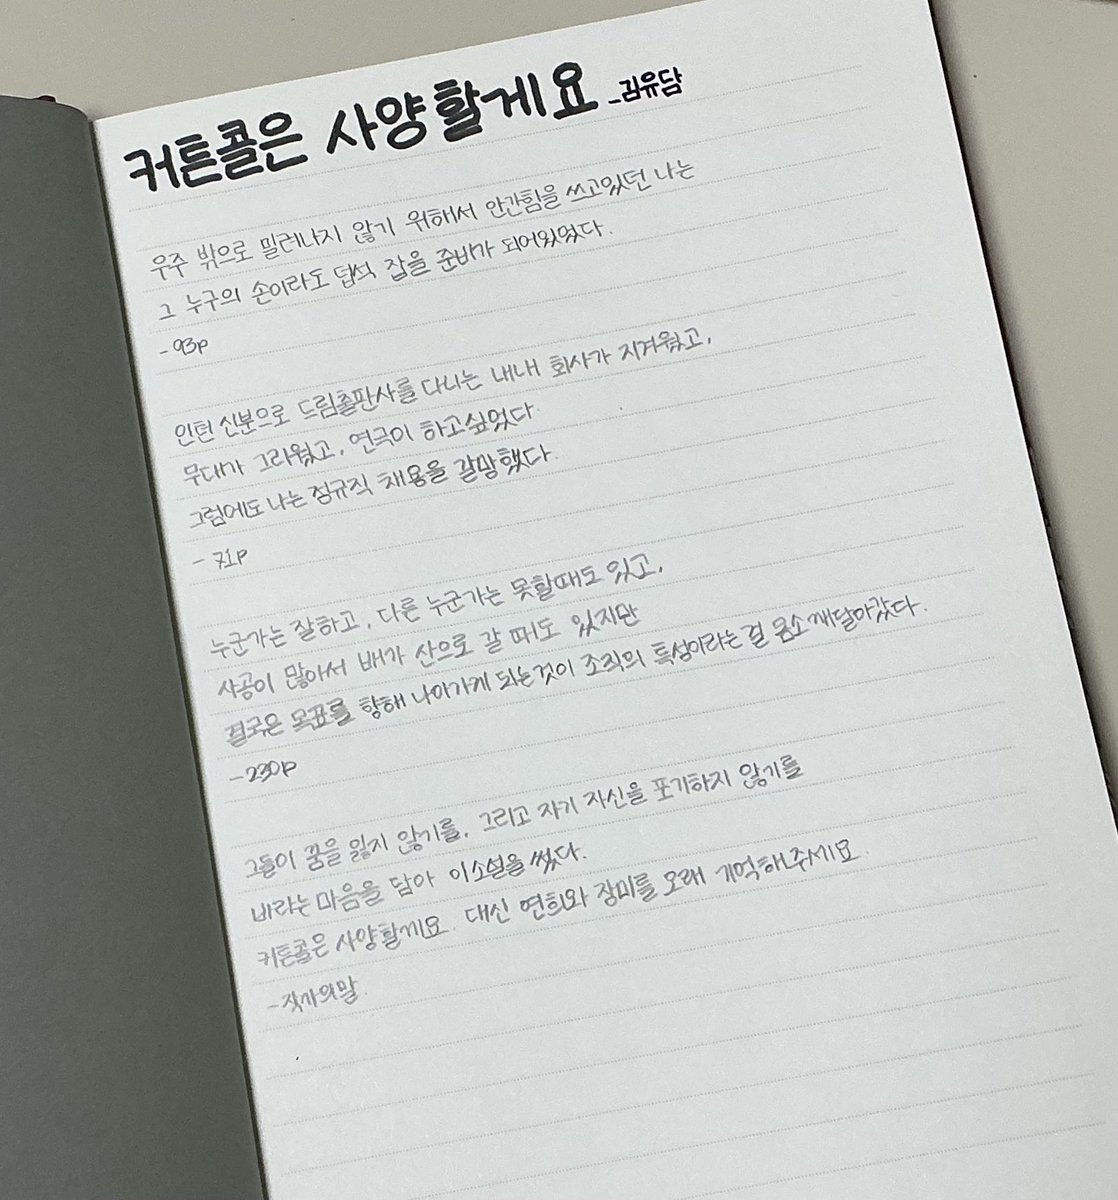 커튼콜은 사양할게요 -김유담
우주 밖으로 밀려나지 않기 위해서 안간힘을 쓰고있던 나는
그 누구의 손이라도 덥석 잡을 준비가 되어있었다.
-93p
인턴 신분으로 드림출판사를 다니는 내내 회사가 지겨웠고,
무대가 그리웠고, 연극이 하고싶었다.
그럼에도 나는 정규직 채용을 갈망했다.
- 71p
누군가는 잘하고, 다른 누군가는 못할때도 있고,
사공이 많아서 배가 산으로 갈 때도 있지만
결국은 목표를 향해 나아가게 되는것이 조직의 특성이라는 걸 몸소 깨달아갔다.
-230p
그들이 꿈을 잃지 않기를, 그리고 자기 자신을 포기하지 않기를
바라는 마음을 담아 이소설을 썼다.
커튼콜은 사양할게요. 대신 연희와 장미를 오래 기억해주세요.
-작가의말.